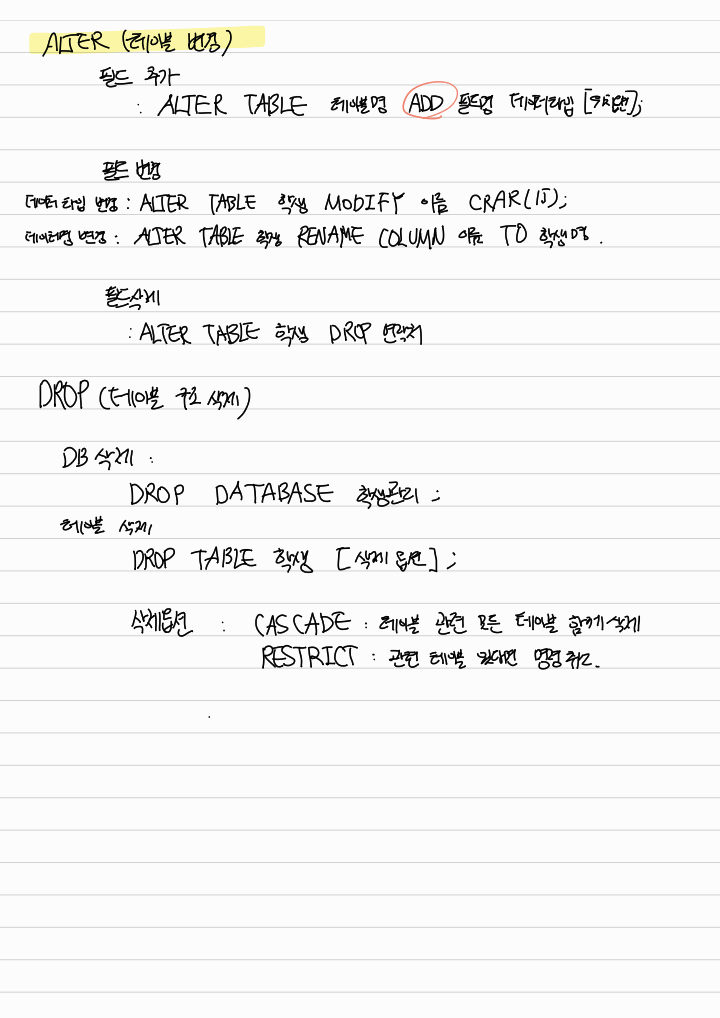 ALTER (테이블 변경)
필드 추가
: ALTER TABLE 테이블명 ADD 필드명 데이터타입 [위치옵션];
필드 변경
데이터 타입 변경 : ALTER TABLE 학생 MODIFY 이름 CRAR(15);
데이터명 변경 : ALTER TABLE 학생 RENAME COLUMN 이름 TO 학생명.
필드삭제
: ALTER TABLE 학생 DROP 연락처
DROP (테이블 구조 삭제)
DB 삭제 :
DROP DATABASE 학생관리 ;
테이블 삭제
DROP TABLE 학생 [삭제 옵션] ;
삭제옵션 : CASCADE : 테이블 관련 모든 테이블 함께 삭제
RESTRICT : 관련 테이블 있다면 명령 취소.